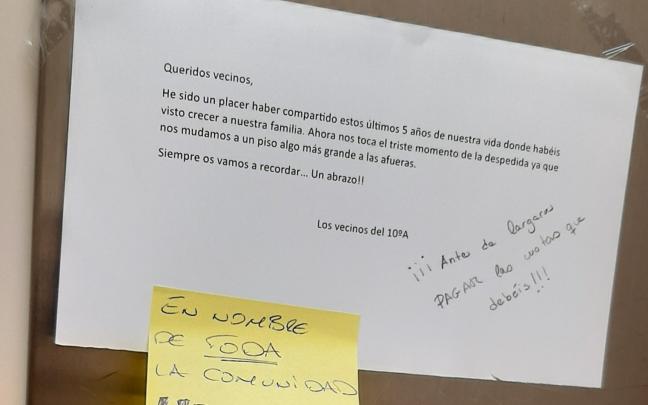 Queridos vecinos,
He sido un placer haber compartido estos últimos 5 años de nuestra vida donde habéis
visto crecer a nuestra familia. Ahora nos toca el triste momento de la despedida ya que
nos mudamos a un piso algo más grande a las afueras.
Siempre os vamos a recordar... Un abrazo!!
Los vecinos del 10ºA
¡¡¡ Antes de largaros
PAGAR las cuotas que
debéis!!!
EN NOMBRE
DE TODA
LA COMUNIDAD